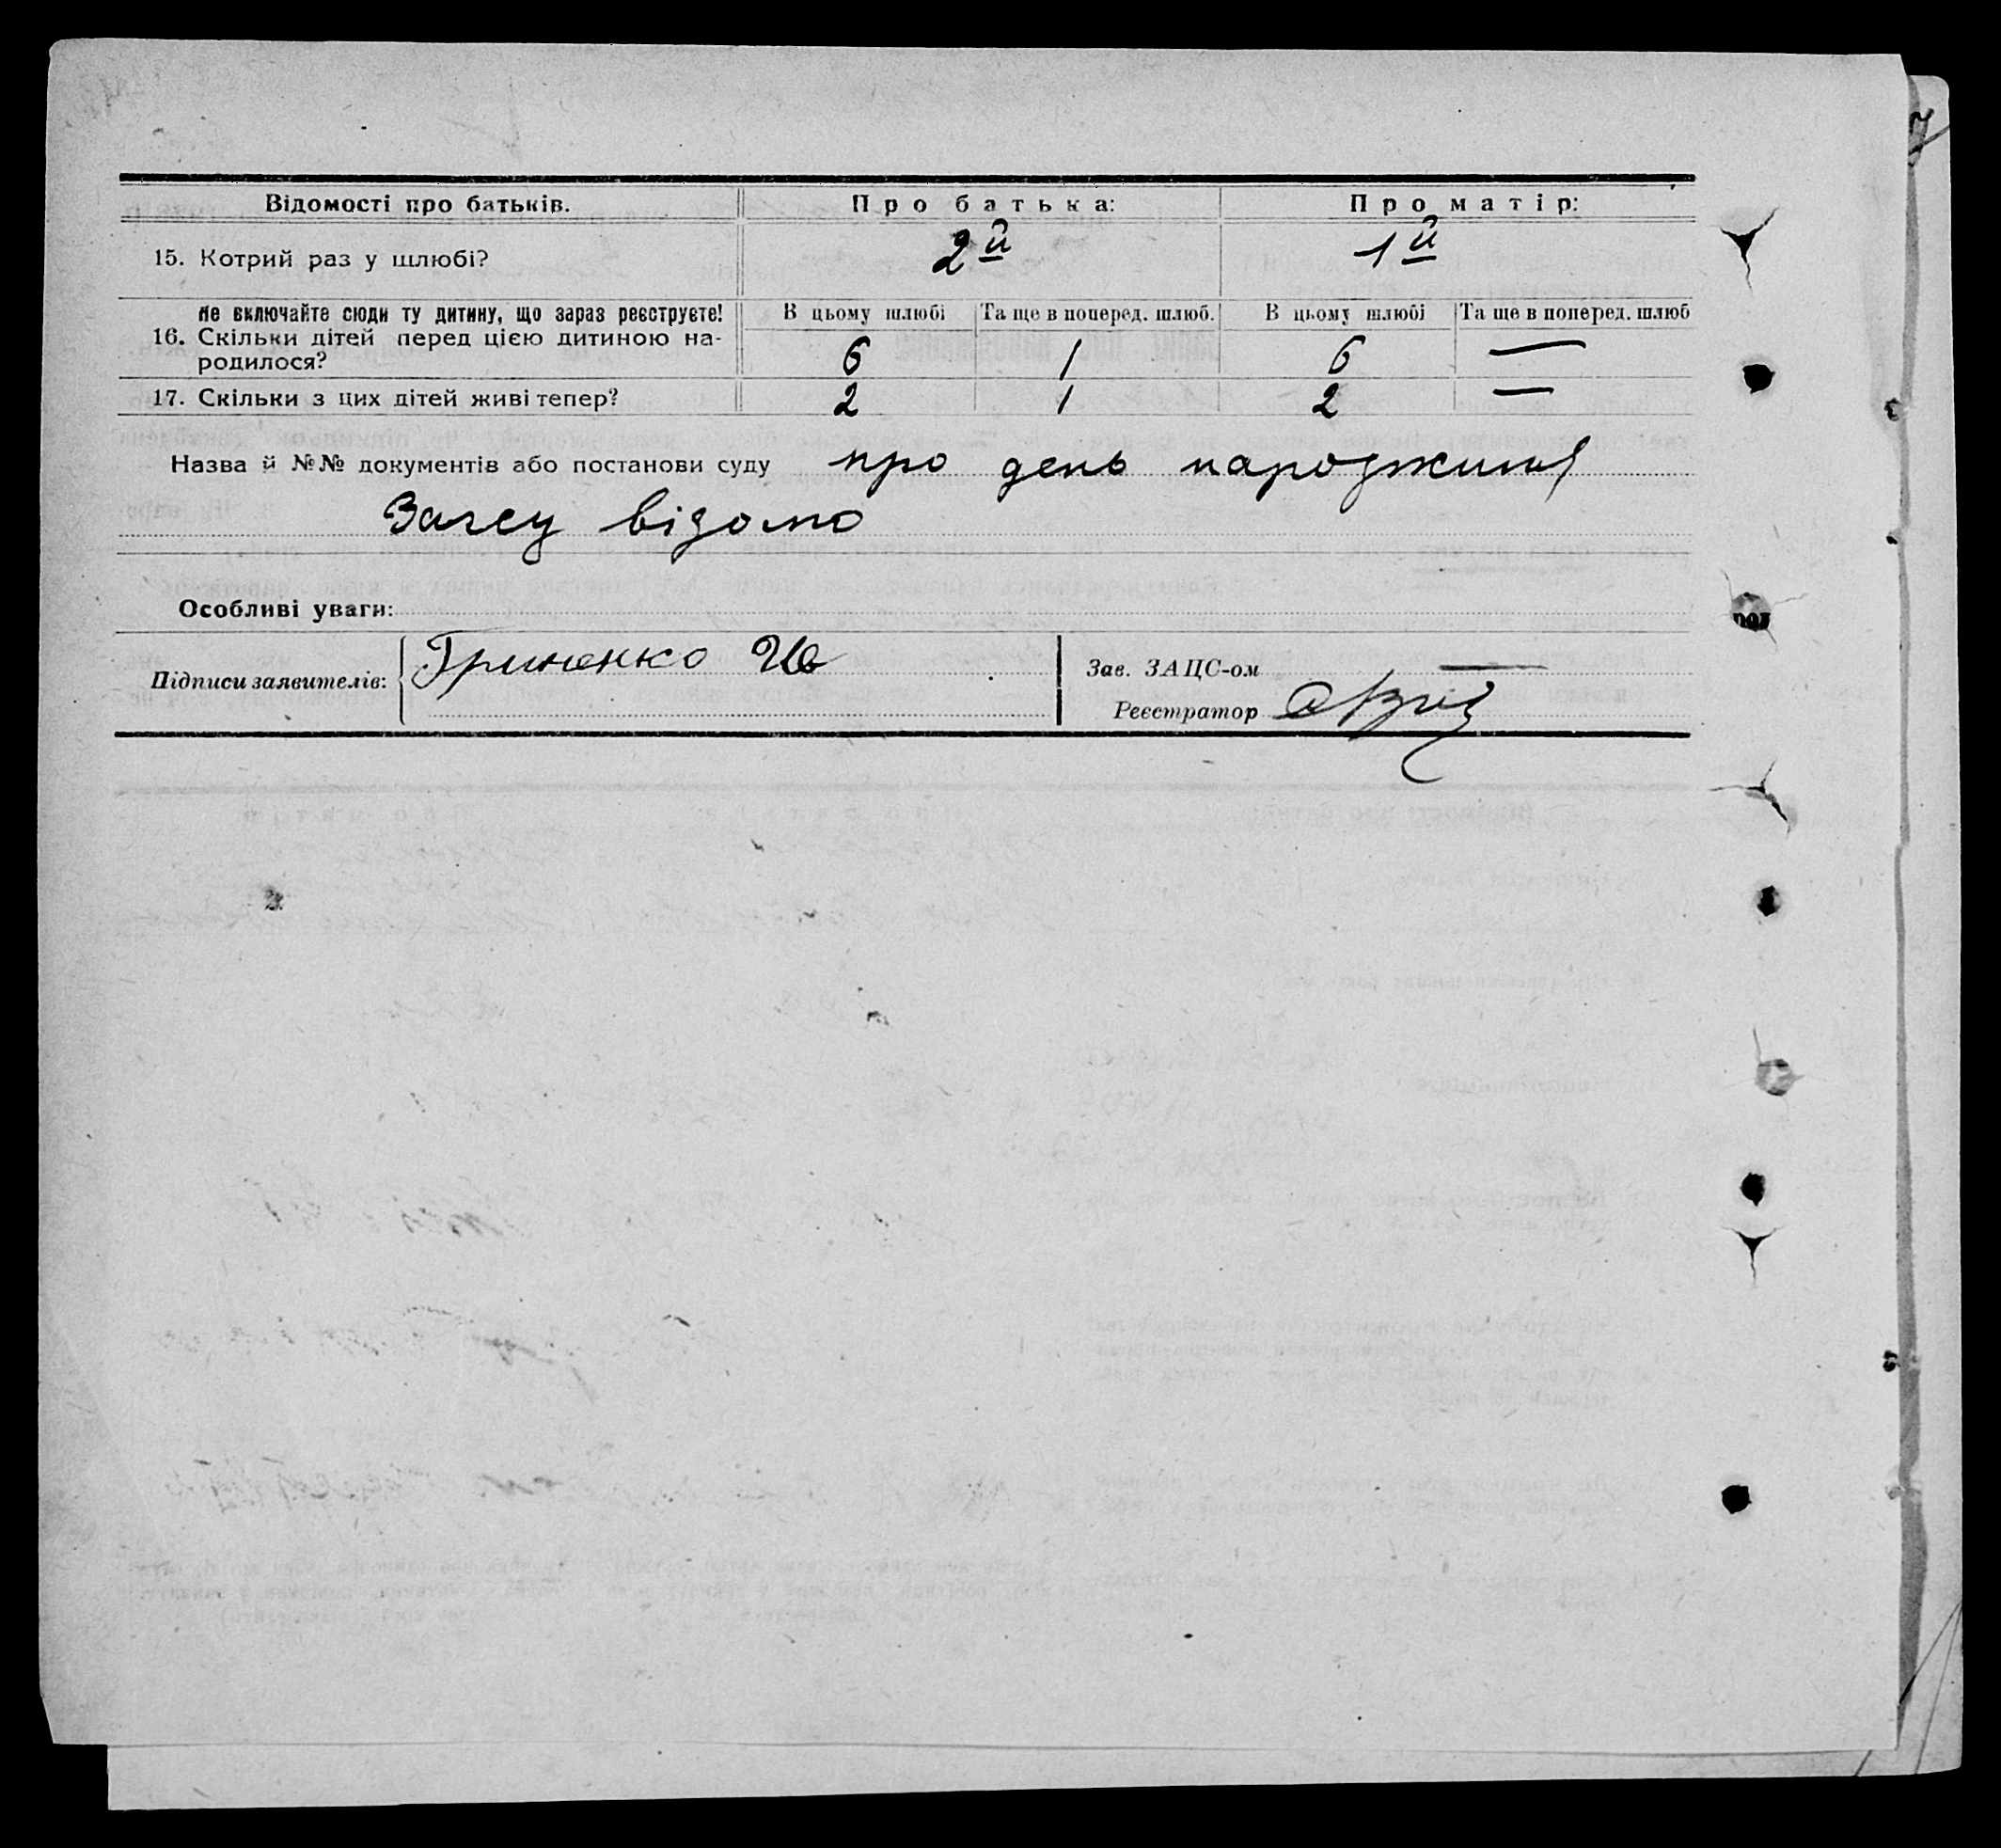 Відомості про батьків. Про батька: Про матір:
15. Котрий раз у шлюбі? 2й 1й
Не включайте сюди ту дитину, що зараз реєструєте! В цьому шлюбі Та ще в поперед. шлюб. В цьому шлюбі Та ще в поперед. шлюб
16. Скільки дітей перед цією дитиною на-
родилося? 6 1 6 —
17. Скільки з цих дітей живі тепер? 2 1 2 —
Назва й №№ документів або постанови суду про день народження
Загсу відомо
Особливі уваги:
Підписи заявителів: Гриненко
Зав. ЗАЦС-ом —
Реєстратор